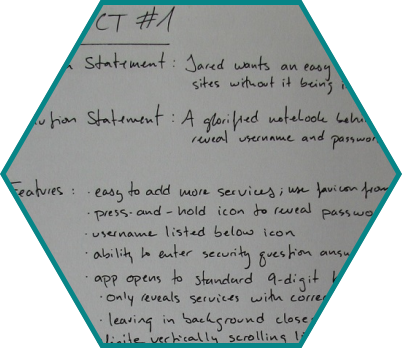 CT #1
Statement : Jared wants an easy
sites without it being
Statement : A glorified notebook
reveal username and
Features : · easy to add more services; use favicon from
· press-and-hold icon to reveal
· username listed below icon
· ability to enter security question
· app opens to standard 9-digit
· only reveals services with
· leaving in background
vertically scrolling